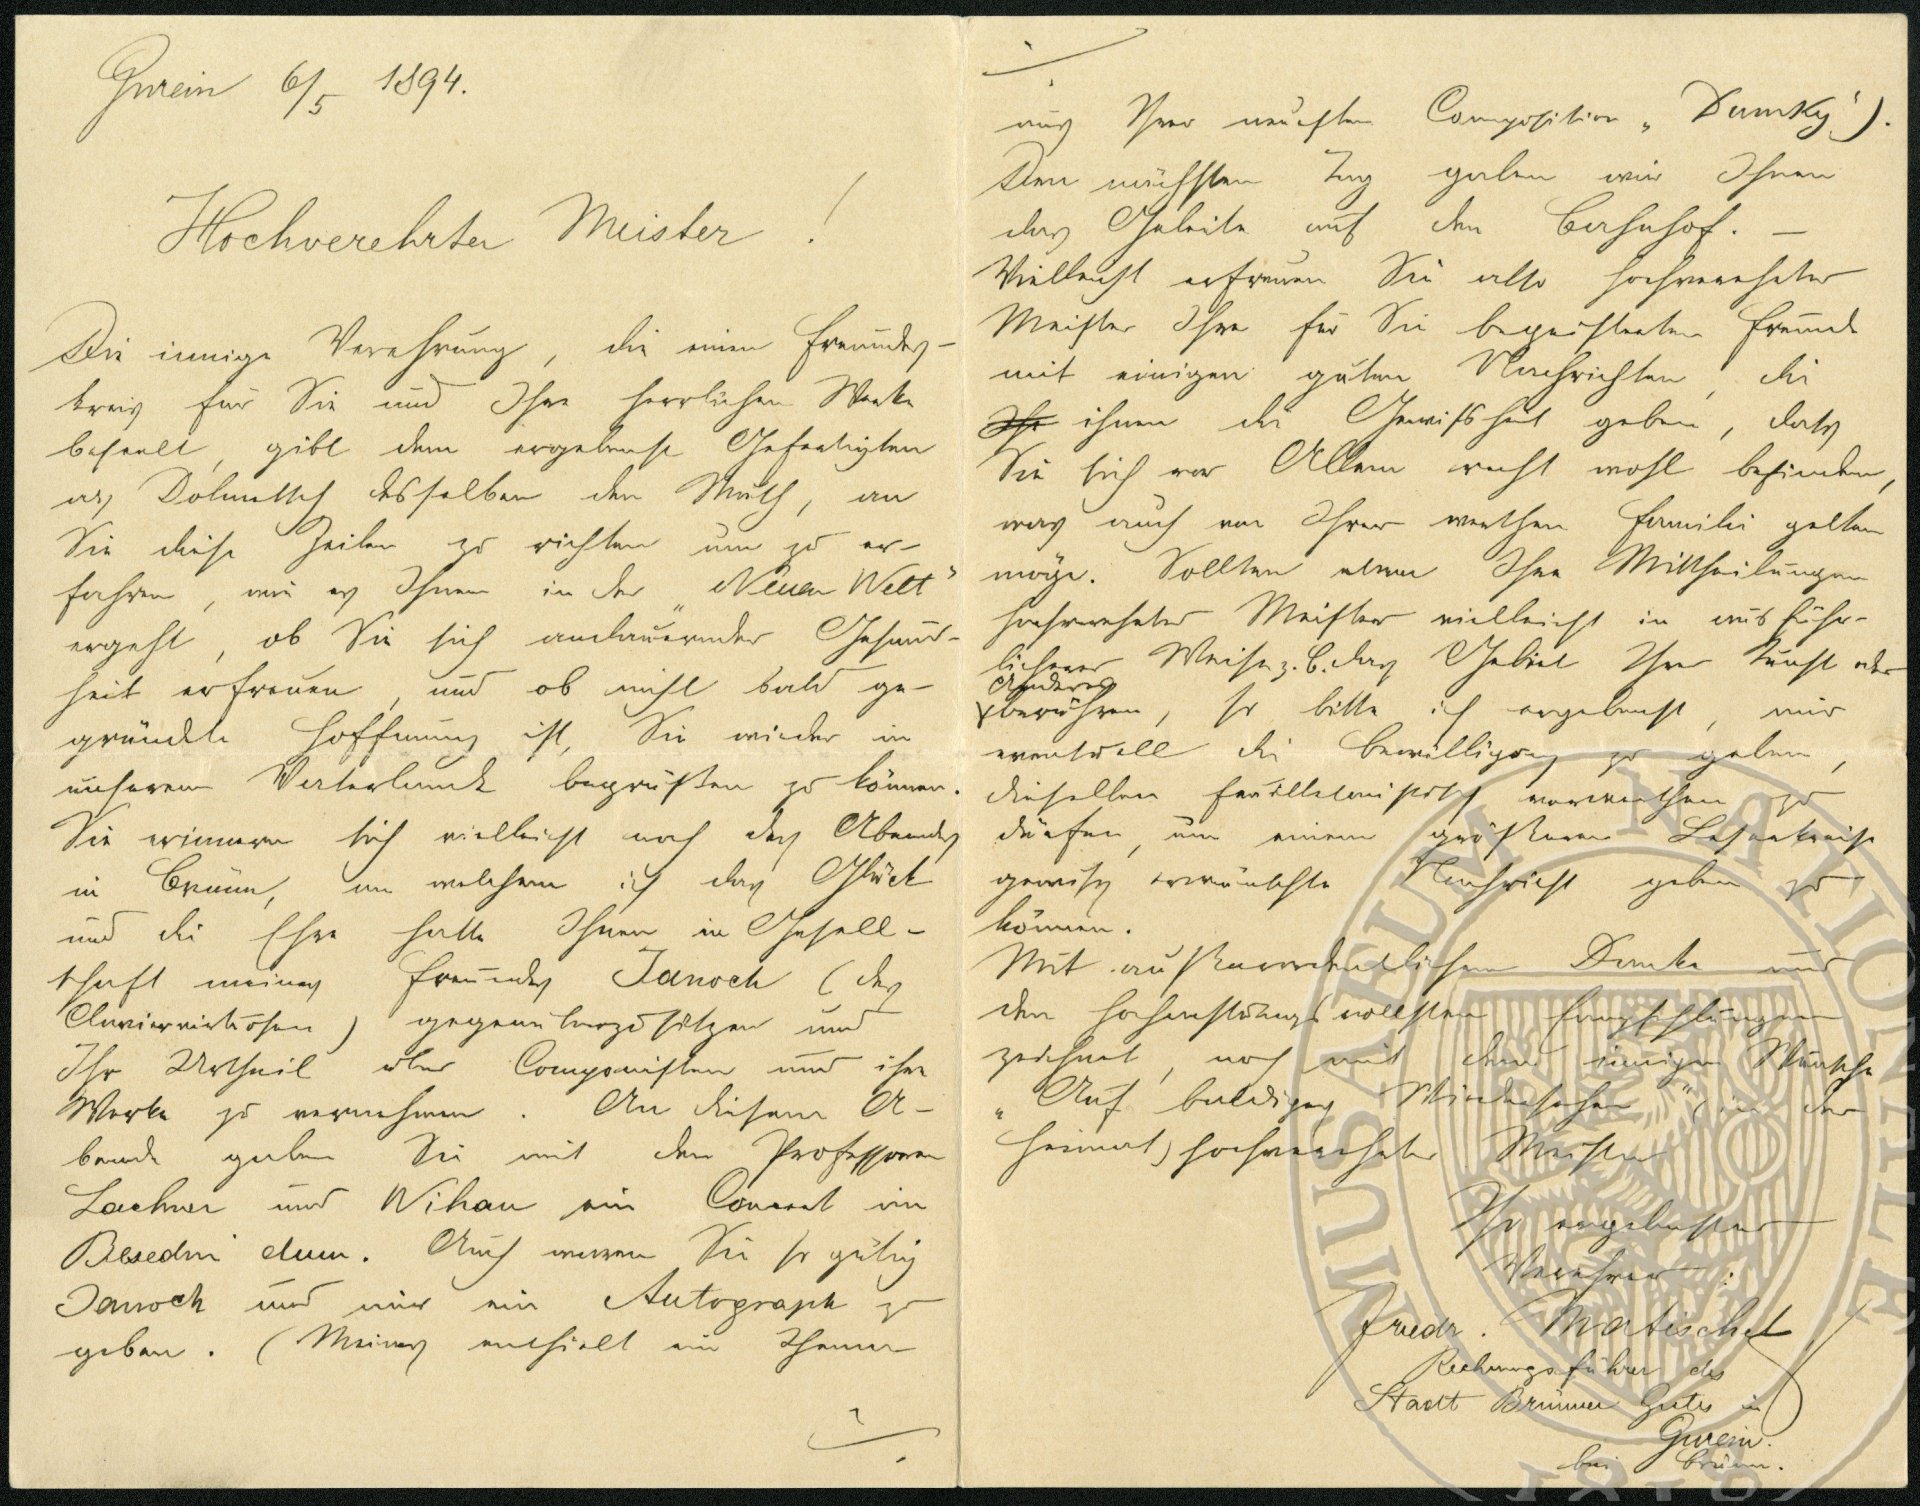 Gurein 6/5 1894.
Hochverehrter Meister !
Die innige Verehrung, die einen Freundes-
kreis für Sie und Ihre herrlichen Werke
beseelt, gibt dem ergebenst Gefertigten
als Dolmetsch desselben den Muth, an
Sie diese Zeilen zu richten um zu er-
fahren, wie es Ihnen in der „Neuen Welt"
ergeht, ob Sie sich andauernder Gesund-
heit erfreuen, und ob nicht bald ge-
gründete Hoffnung ist, Sie wieder in
unserem Vaterlande begrüßen zu können.
Sie erinnern sich vielleicht noch des Abends
in Brünn, an welchem ich das Glück
und die Ehre hatte Ihnen in Gesell-
schaft meines Freundes Janoch (des
Claviervirtuosen) gegenüberzusitzen und
Ihr Urtheil über Componisten und ihre
Werke zu vernehmen. An diesem A-
bende gaben Sie mit den Professoren
Lachner und Wihan ein Concert im
Besední dum. Auch waren Sie so gütig
Janoch und mir ein Autograph zu
geben. (Meines enthielt ein Thema
./.
./.
aus Ihrer neuesten Composition „Dumky").
Den nächsten Tag gaben wir Ihnen
das Geleite auf den Bahnhof. —
Vielleicht erfreuen Sie also hochverehrter
Meister Ihre für Sie begeisterten Freunde
mit einigen guten Nachrichten, die
Ihr ihnen die Gewißheit geben, daß
Sie sich vor Allem recht wohl befinden,
was auch von Ihrer werthen Familie gelten
möge. Sollten etwa Ihre Mittheilungen
hochverehrter Meister vielleicht in ausführ-
licherer Weise z. B. das Gebiet Ihrer Kunst oder
Anderes
berühren, so bitte ich ergebenst, mir
eventuell die Bewilligung zu geben,
dieselben feuilletonistisch verwerthen zu
dürfen, um einem größeren Leserkreise
gewiß erwünschte Nachricht geben zu
können.
Mit außerordentlichem Danke und
den hochachtungsvollsten Empfehlungen
zeichnet, noch mit dem innigen Wunsche
„Auf baldiges Wiedersehen" (in der
Heimat) hochverehrter Meister
Ihr ergebenster
Verehrer:
Friedr. Matischek
Rechnungsführer des
Stadt Brünner Gutes in
Gurein.
bei Brünn.
MUSAEUM NATIONALE
1818